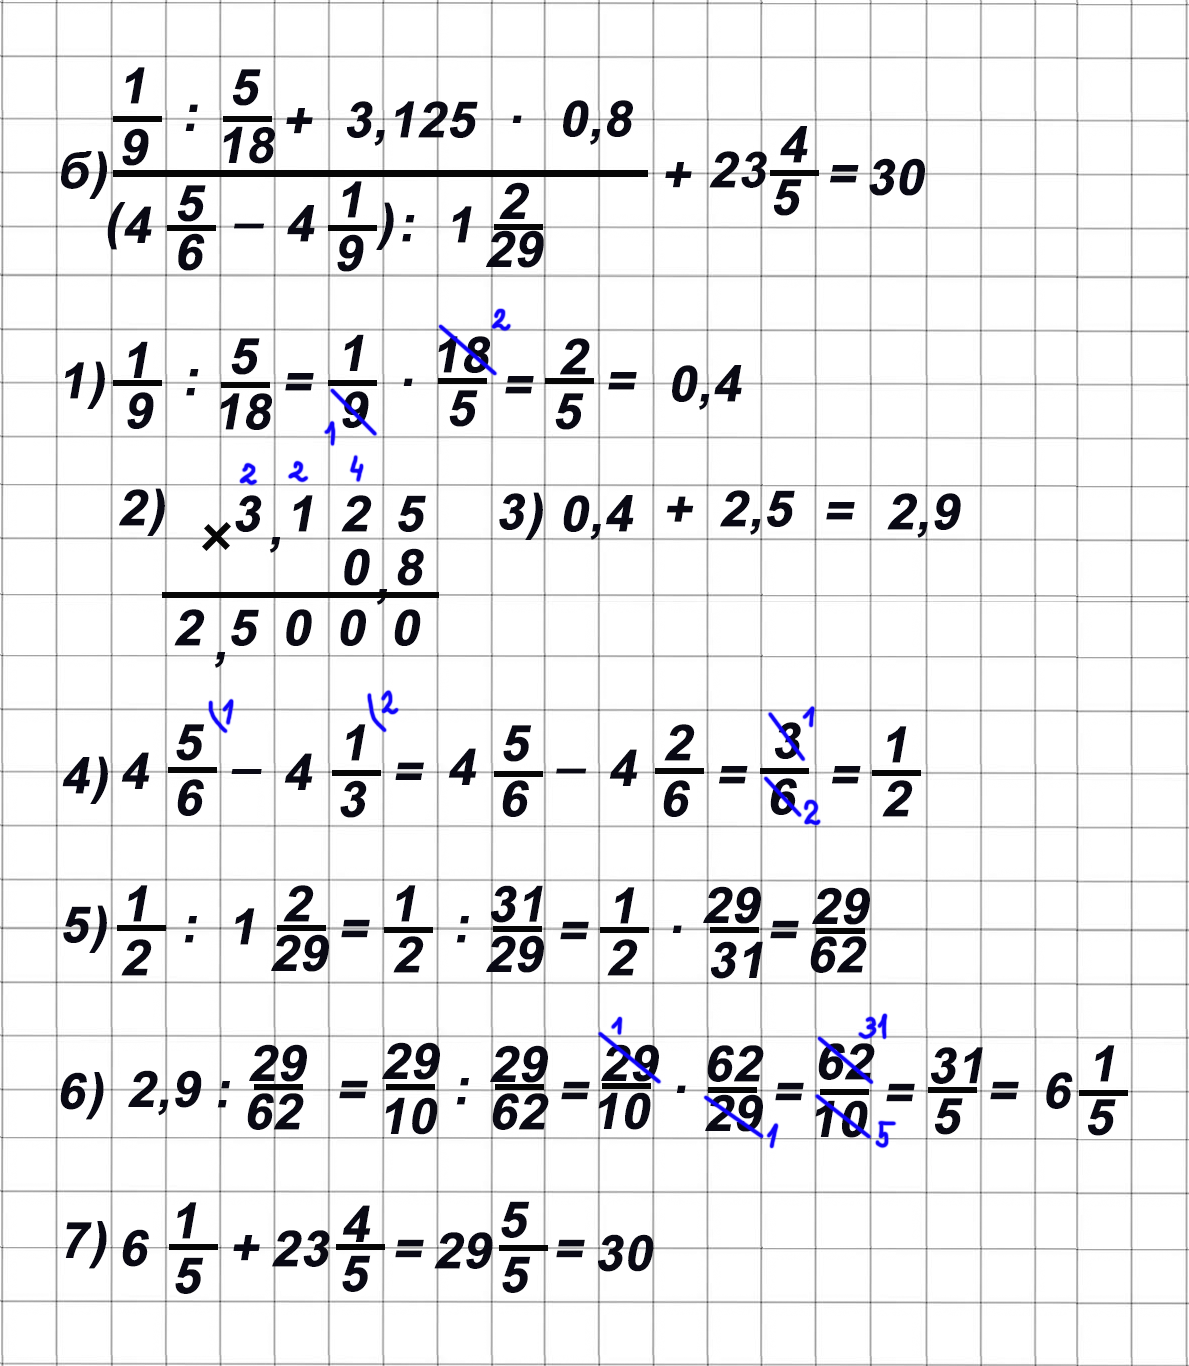 б) (1/9 : 5/18 + 3,125 · 0,8) / ((4 5/6 − 4 1/9) : 1 2/29) + 23 4/5 = 30
1) 1/9 : 5/18 = 1/9 · 18/5 = 2/5 = 0,4
1 2
2) 3,125 × 0,8 = 2,5000
2 2 4
3) 0,4 + 2,5 = 2,9
4) 4 5/6 − 4 1/3 = 4 5/6 − 4 2/6 = 3/6 = 1/2
1 2 1 2
5) 1/2 : 1 2/29 = 1/2 : 31/29 = 1/2 · 29/31 = 29/62
6) 2,9 : 29/62 = 29/10 : 29/62 = 29/10 · 62/29 = 62/10 = 31/5 = 6 1/5
1 1 31 5
7) 6 1/5 + 23 4/5 = 29 5/5 = 30